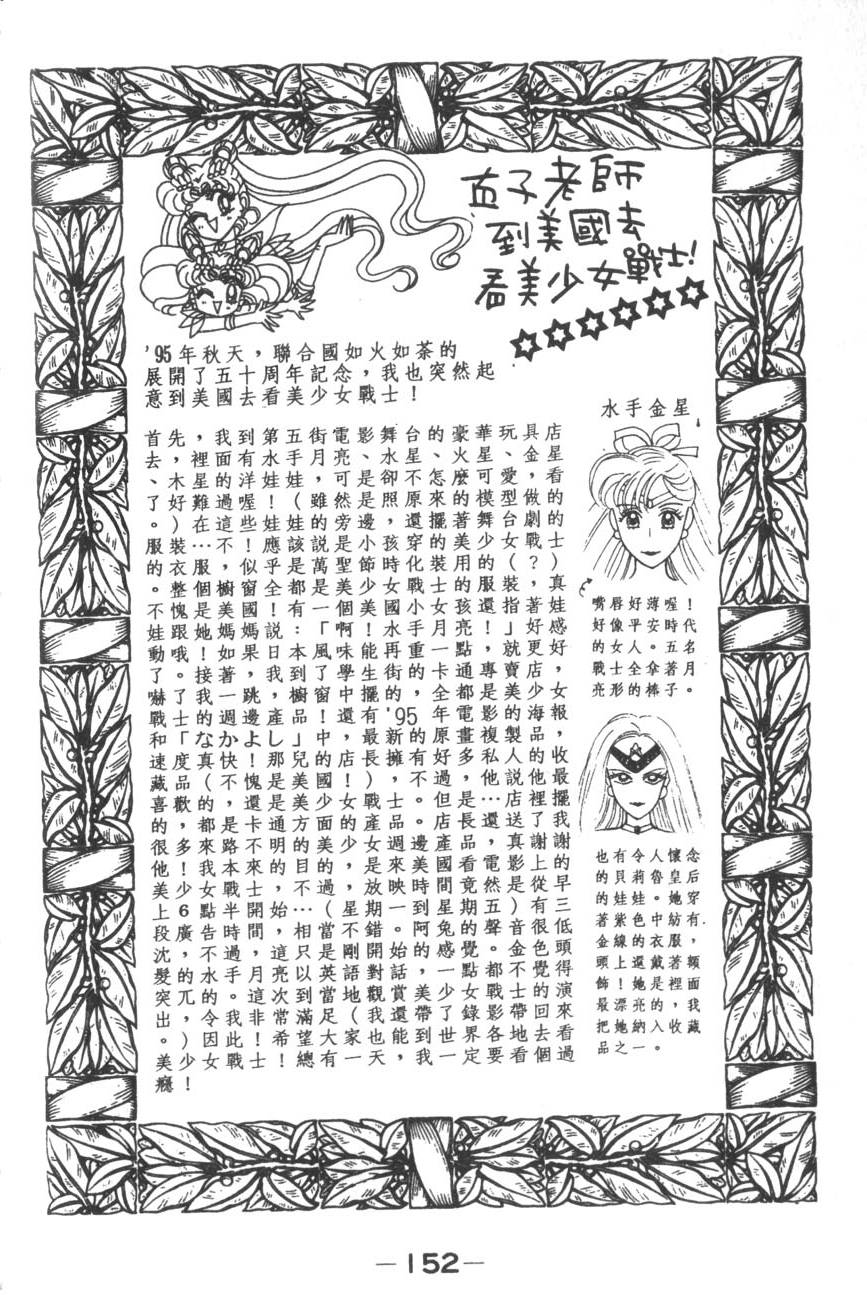 直子老師
到美國去
看美少女戰士!
'95年秋天，聯合國如火如荼的
展開了五十周年記念，我也突然起
意到美國去看美少女戰士！
首先，我到第五街電影舞台的豪華玩具店
去，裡面有水手月亮、水星、火星、金星
、木星的洋娃娃，可是卻不怎麼可愛，看
了好難過喔！（雖然是照原來的模型做的
。）在這些娃娃的旁邊，還擺著舞台劇的
服裝…不！應該説是小孩穿的美少女戰士
的衣服，似乎是萬聖節時化裝用的（？）
。整個櫥窗全都是美少女戰士的服裝，真
不愧是美國！有一個美國小女孩還指著娃
娃跟她媽媽説：「啊！水手月亮！」好感
動哦！如果日本風味能再重一點就更好
了。接著，我到了學生街的卡通專賣店，
嚇了我一跳，櫥窗中擺的，全都是美少女
戰士的週邊產品！還有'95年電影的海報，
和「なかよし」中，最新的原畫複製品，
速度真快！那兒的店長擁有好多私人的收
藏品（不愧是美國！），不過他説他最
喜歡的，還是美少女戰士。但是…店裡擺
的都是卡通方面的產品。店長還送了我
很多，來路不明的週邊產品，真謝謝
他！我本來的目的，是來美國看電影上的
美少女戰士
段廣告時間，相當不錯。阿兔的聲音很低
沈的，不過，這只是剛開始的感覺。金色頭
髮的水手月亮以英語對話，一點都不覺得
突兀
出，令我非常滿足
美少女戰士！希望大家也能到世界各地去看
美少女戰士！總有一天，我一定要看個過
癮！
水手金星
嘴唇好薄喔！
好像平安時代
的女人。五名
戰士全拿著月
亮形的棒子。
也有令人懷念
的貝莉魯皇后
的娃娃。她穿
著紫色中紡有
金線的衣服，
頭上還戴著額
飾！她是裡面
最漂亮的，我
把她納入收藏
品之一。
—152—